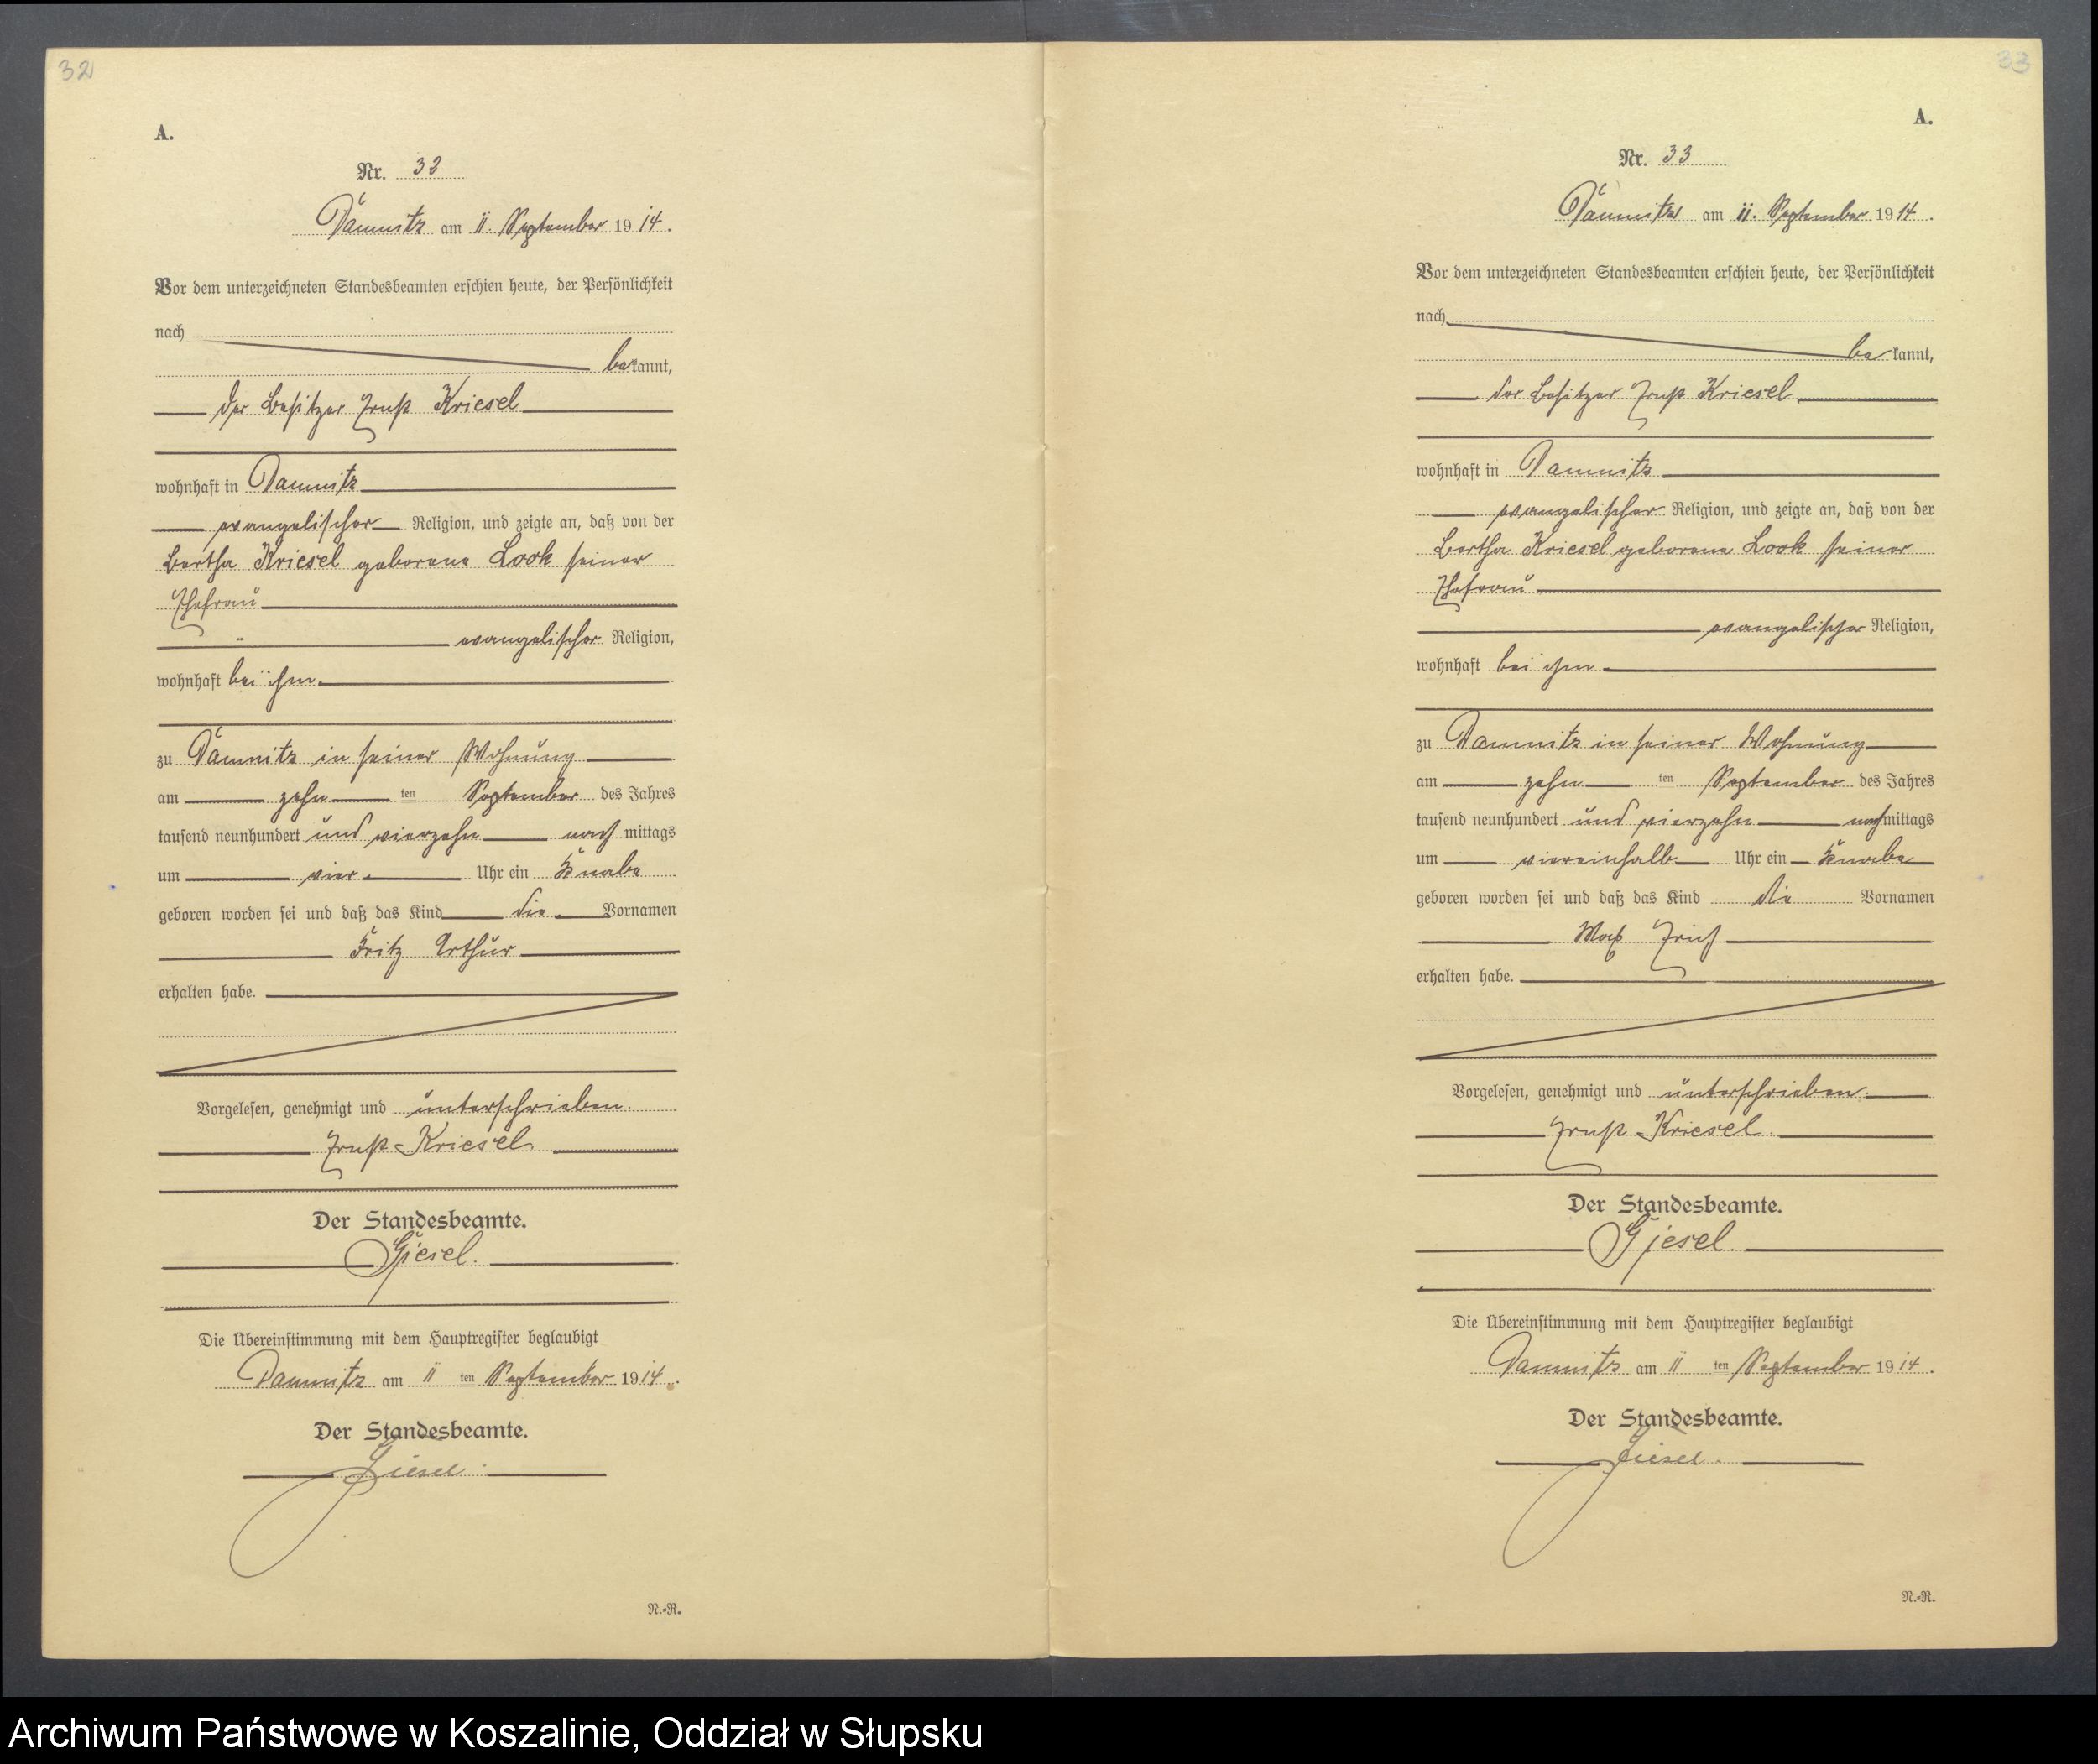 32
A.
Nr. 32
Damnitz am 11. September 1914.
Vor dem unterzeichneten Standesbeamten erschien heute, der Persönlichkeit
nach
bekannt,
der Besitzer Ernst Kriesel
wohnhaft in Damnitz
evangelischer Religion, und zeigte an, daß von der
Bertha Kriesel geborene Look seiner
Ehefrau
evangelischer Religion,
wohnhaft bei ihm
zu Damnitz in seiner Wohnung
am zehn ten September des Jahres
tausend neunhundert und vierzehn nach mittags
um vier Uhr ein Knabe
geboren worden sei und daß das Kind die Vornamen
Fritz Arthur
erhalten habe.
Vorgelesen, genehmigt und unterschrieben.
Ernst Kriesel.
Der Standesbeamte.
Giesel.
Die Übereinstimmung mit dem Hauptregister beglaubigt
Damnitz am 11 ten September 1914.
Der Standesbeamte.
Giesel.
N.-R.
33
A.
Nr. 33
Damnitz am 11. September 1914.
Vor dem unterzeichneten Standesbeamten erschien heute, der Persönlichkeit
nach
bekannt,
der Besitzer Ernst Kriesel
wohnhaft in Damnitz
evangelischer Religion, und zeigte an, daß von der
Bertha Kriesel geborene Look seiner
Ehefrau
evangelischer Religion,
wohnhaft bei ihm
zu Damnitz in seiner Wohnung
am zehn ten September des Jahres
tausend neunhundert und vierzehn nachmittags
um viereinhalb Uhr ein Knabe
geboren worden sei und daß das Kind die Vornamen
Max Erich
erhalten habe.
Vorgelesen, genehmigt und unterschrieben.
Ernst Kriesel.
Der Standesbeamte.
Giesel.
Die Übereinstimmung mit dem Hauptregister beglaubigt
Damnitz am 11 ten September 1914.
Der Standesbeamte.
Giesel.
N.-R.
Archiwum Państwowe w Koszalinie, Oddział w Słupsku